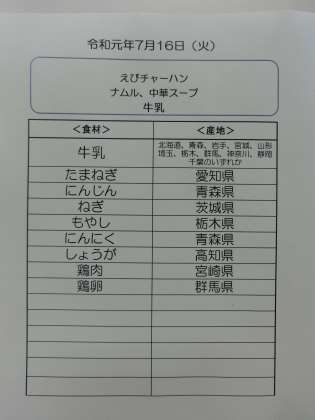 令和元年7月16日（火）
えびチャーハン
ナムル、中華スープ
牛乳
＜食材＞ ＜産地＞
牛乳 北海道、青森、岩手、宮城、山形
埼玉、栃木、群馬、神奈川、静岡
千葉のいずれか
たまねぎ 愛知県
にんじん 青森県
ねぎ 茨城県
もやし 栃木県
にんにく 青森県
しょうが 高知県
鶏肉 宮崎県
鶏卵 群馬県